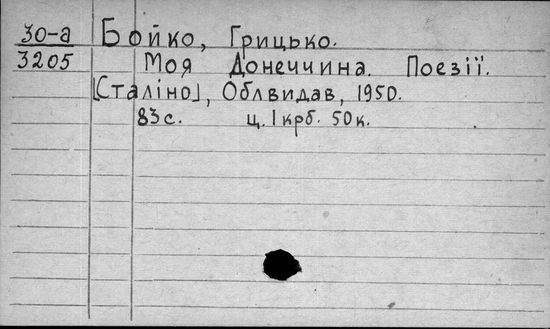 30-а Бойко, Грицько.
3205 Моя Донеччина. Поезії.
[Сталіно], Облвидав, 1950.
83 с. ц. 1 крб. 50 к.